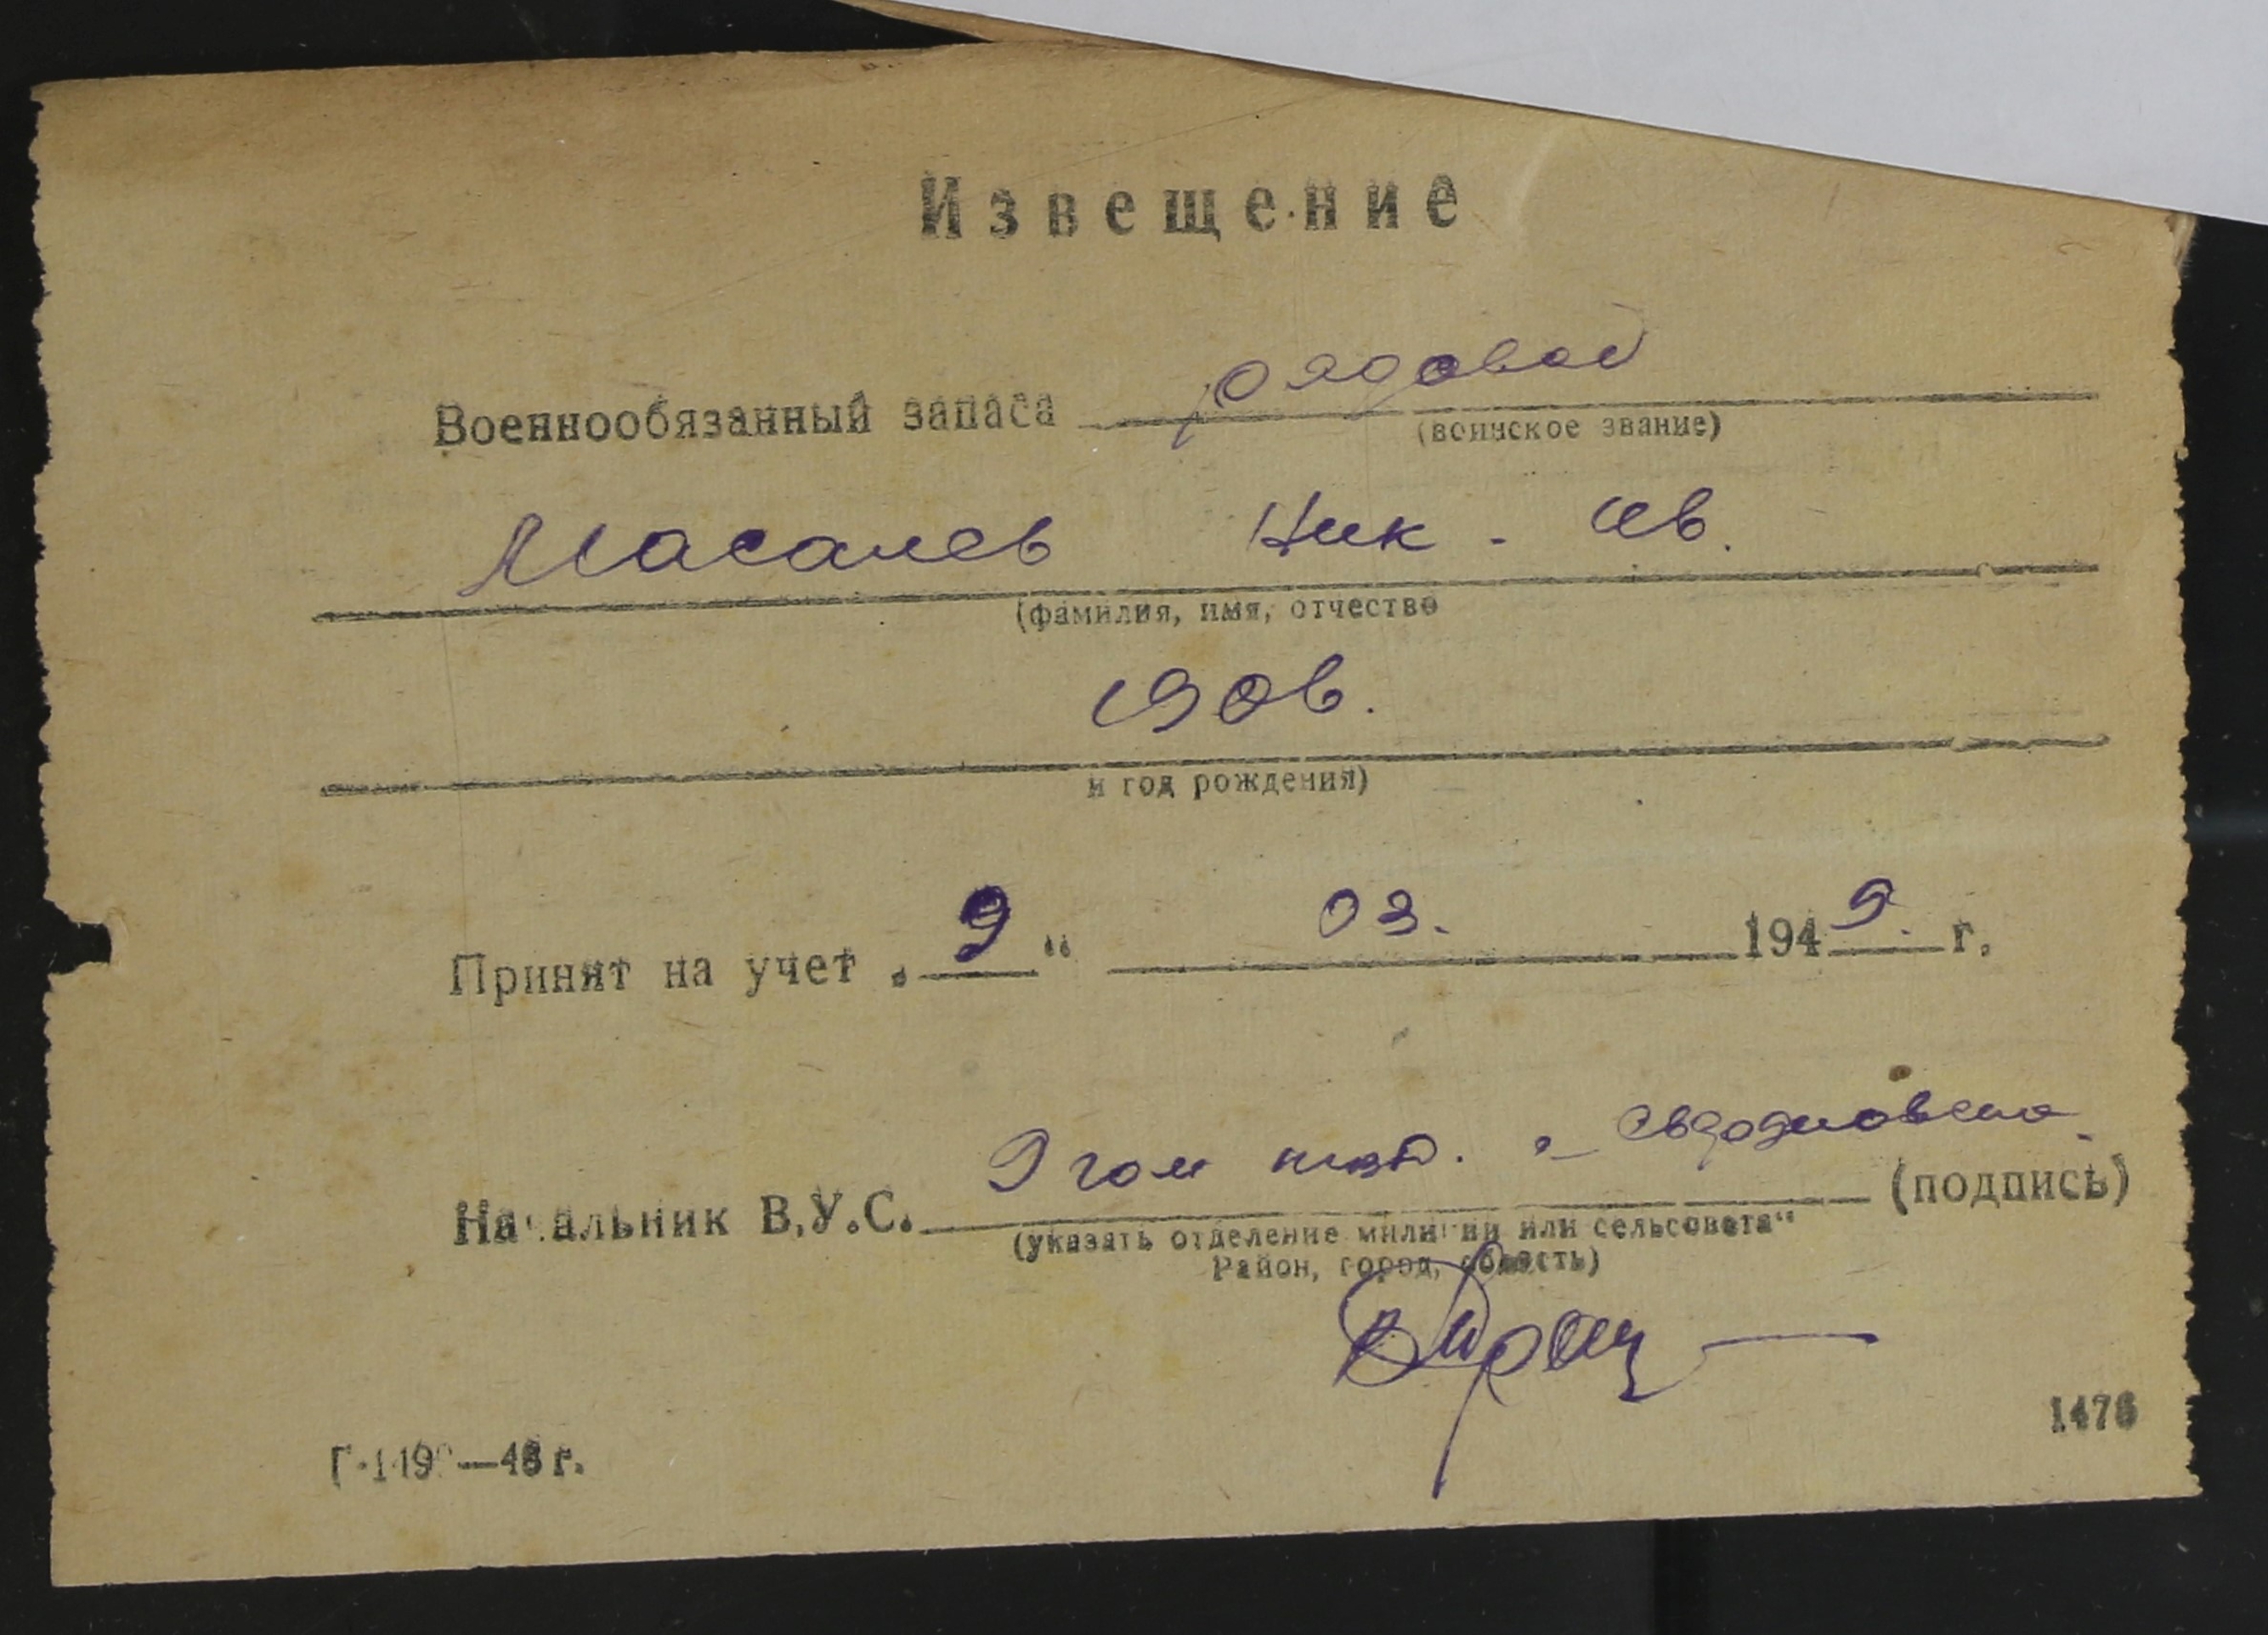 Извещение
Военнообязанный запаса рядовой
(воинское звание)
Масалев Ник. Ив.
(фамилия, имя, отчество
1906.
и год рождения)
Принят на учет „9“ 03. 1949. г.
9 гом г. Свердловска
Начальник В.У.С. (подпись)
(указать отделение милиции или сельсовета“
Район, город, область)
1476
—48 г.